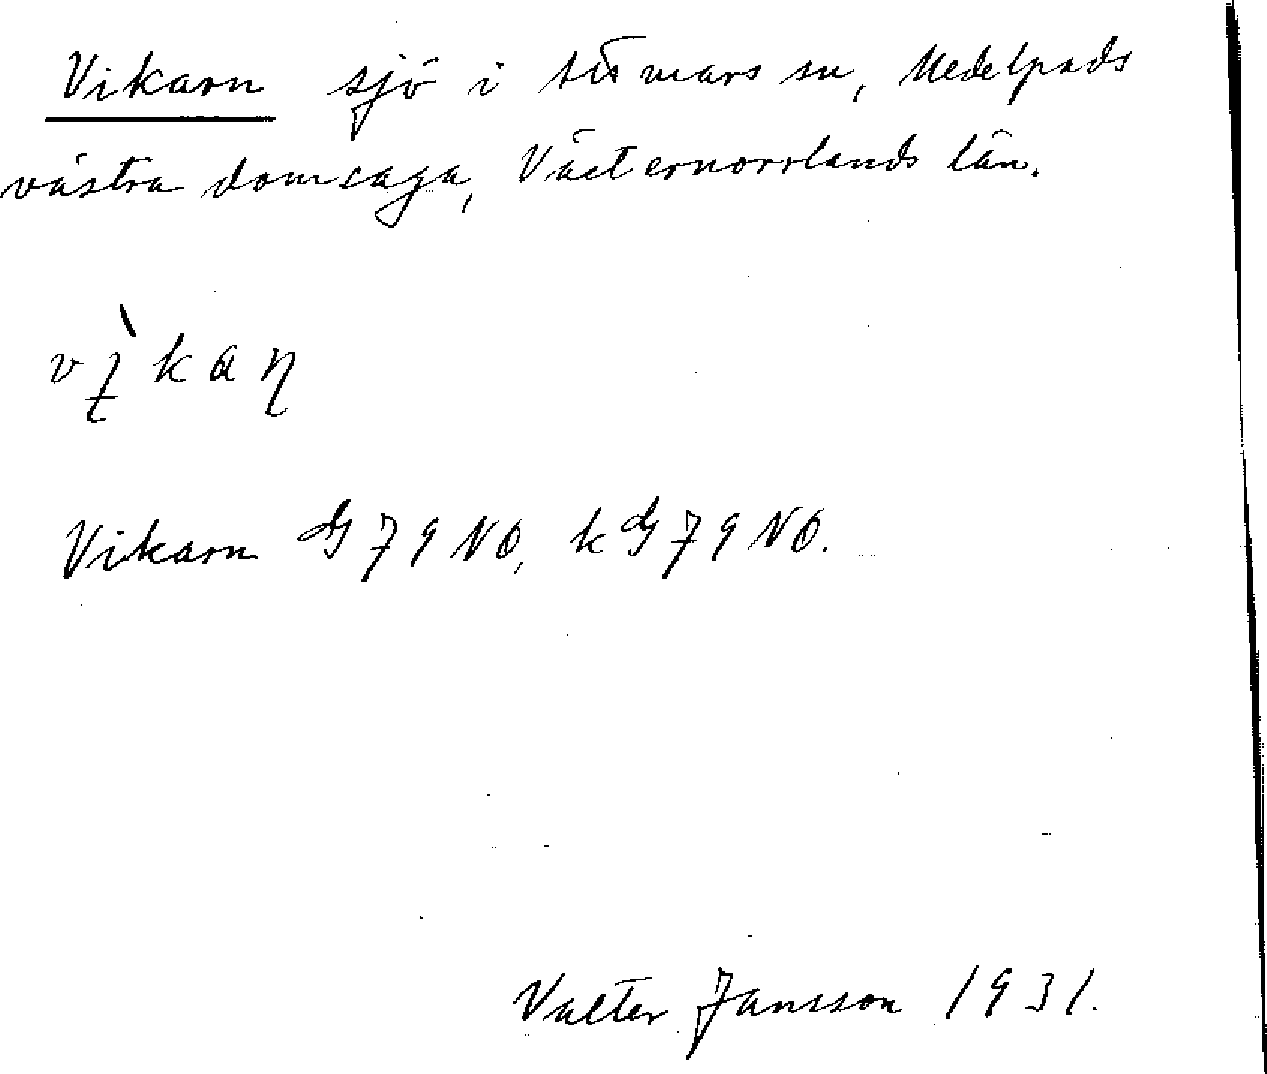 Vikarn sjö i Attmars sn, Medelpads
västra domsaga, Västernorrlands län.
Vikarn G79NO, kG79NO.
Valter Jansson 1931.